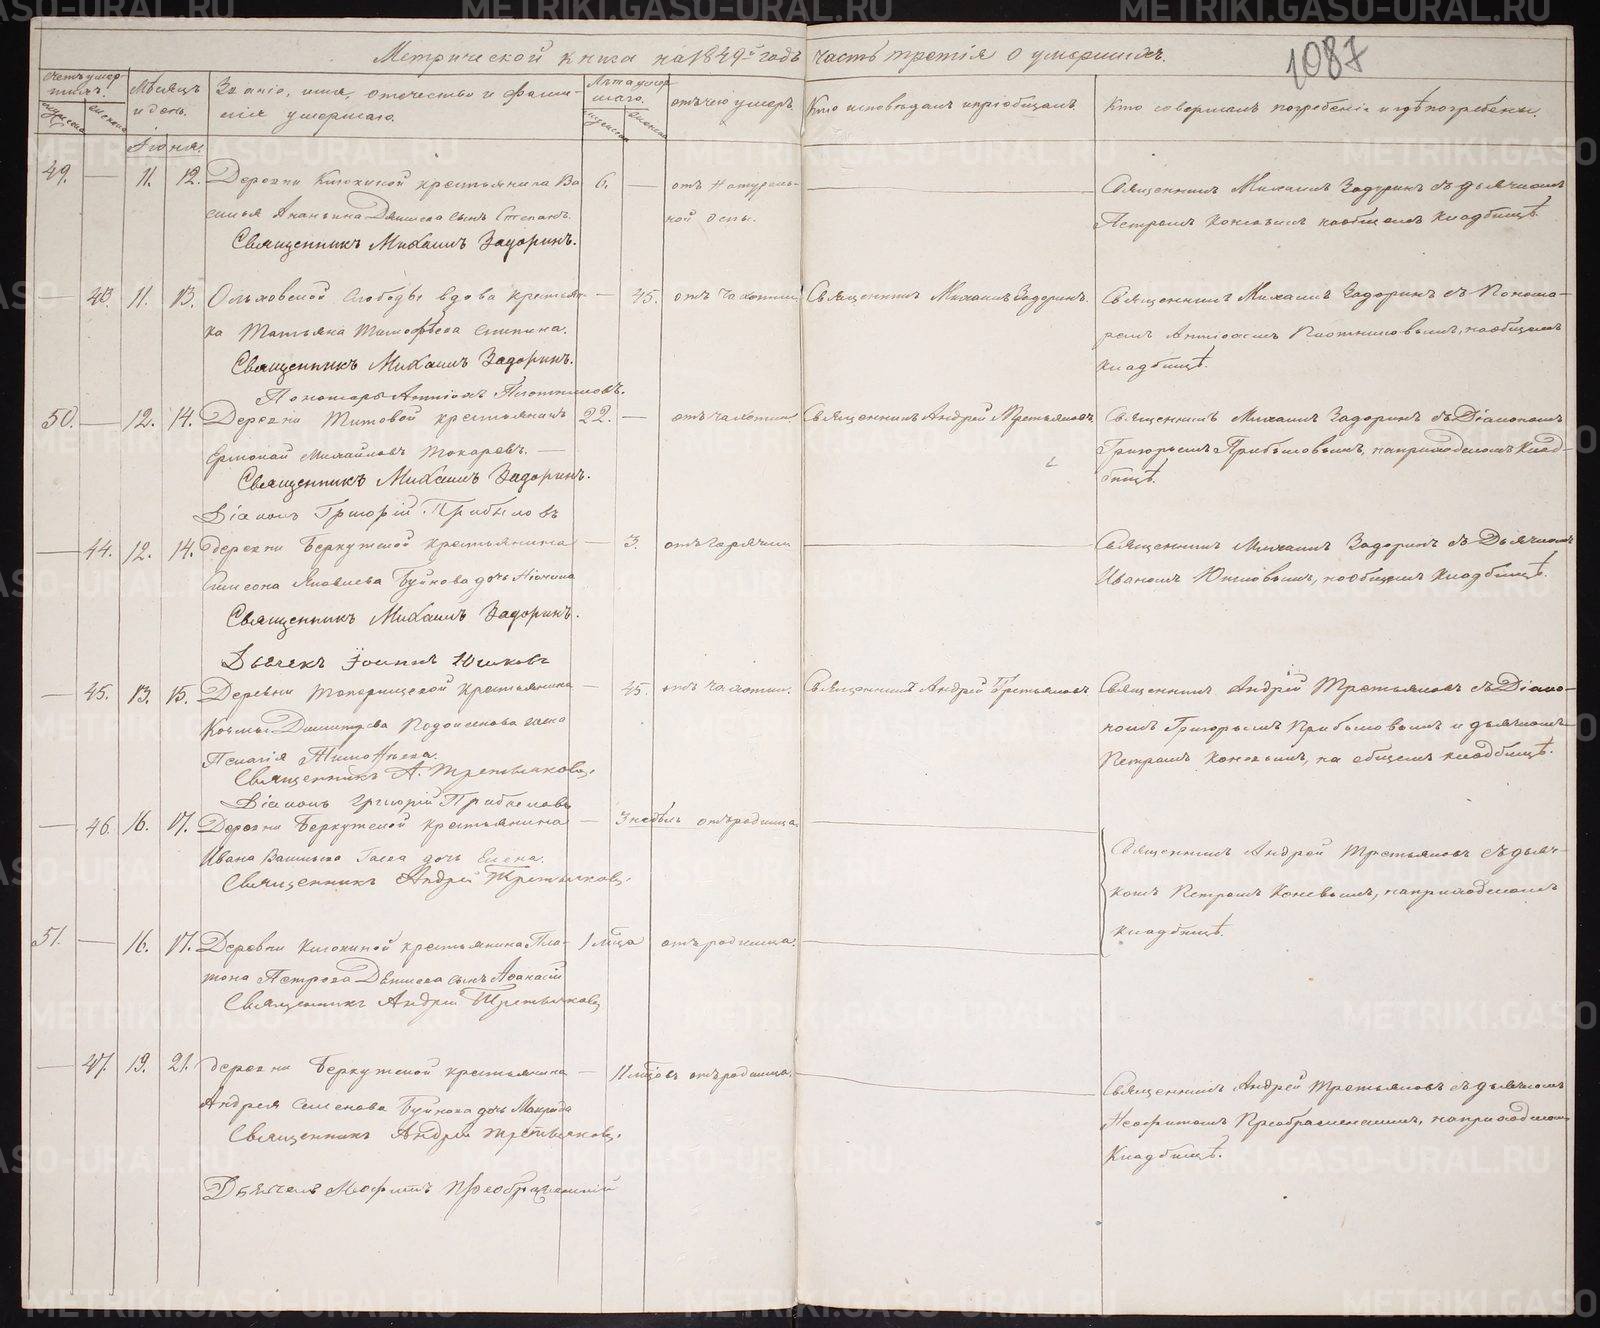 Метрической книги на 1849й годъ часть третія о умершихъ.
1087
Счетъ умершихъ.
Мѣсяцъ и день.
Званіе, имя, отечество и фамилія умершаго.
Лѣта умершаго.
отъ чего умеръ.
Кто исповѣдалъ и пріобщалъ.
Кто совершалъ погребеніе и гдѣ погребены.
мужеска
женска
Іюня.
49. — 11. 12. Деревни Клюкиной крестьянина Ва- 6. — отъ натураль- Священникъ Михаилъ Задоринъ съ дьячкомъ
силья Ананьина сынъ Степанъ. ной оспы. Петромъ Коневымъ на общемъ кладбищѣ.
Священникъ Михаилъ Задоринъ.
— 43. 11. 13. Ольховской слободы вдова крестьян- — 45. отъ чахотки Священникъ Михаилъ Задоринъ. Священникъ Михаилъ Задоринъ съ Понома-
ка Татьяна Тимофѣева ремъ Плотниковымъ, на общемъ
Священникъ Михаилъ Задоринъ. кладбищѣ.
Пономарь Плотниковъ.
50. — 12. 14. Деревни Титовой крестьянинъ 22. — отъ чахотки Священникъ Андрей Третьяковъ Священникъ Михаилъ Задоринъ съ Діакономъ
Ермолай Михайловъ Токаревъ. — Григорьемъ Прибыловымъ, на приходскомъ клад-
Священникъ Михаилъ Задоринъ. бищѣ.
Діаконъ Григорій Прибыловъ
— 44. 12. 14. деревни Беркутской крестьянина — 3. отъ горячки Священникъ Михаилъ Задоринъ съ Дьячкомъ
Симеона Яковлева Буйнова дочь Иваномъ Юшковымъ, на общемъ кладбищѣ.
Священникъ Михаилъ Задоринъ.
Дьячекъ Іоаннъ Юшковъ
— 45. 13. 15. Деревни Топорищевой крестьянина — 45. отъ чахотки. Священникъ Андрей Третьяковъ Священникъ Андрей Третьяковъ съ Діако-
Козмы Димитріева жена номъ Григорьемъ Прибыловымъ и дьячкомъ
Пелагія Тимофѣева. Петромъ Коневымъ, на общемъ кладбищѣ.
Священникъ А. Третьяковъ.
Діаконъ Григорій Прибыловъ
— 46. 16. 17. Деревни Беркутской крестьянина — 3 недѣль отъ родимца. Священникъ Андрей Третьяковъ съ дьяч-
Ивана Васильева дочь Елена. комъ Петромъ Коневымъ, на приходскомъ
Священникъ Андрей Третьяковъ. кладбищѣ.
51. — 16. 17. Деревни Клюкиной крестьянина Пла- 1 мѣсяца отъ родимца.
тона Петрова сынъ Афанасій
Священникъ Андрей Третьяковъ
— 47. 19. 21. деревни Беркутской крестьянина — 11 мѣсяцовъ отъ родимца. Священникъ Андрей Третьяковъ съ дьячкомъ
Андрея Семенова Буйнова дочь Неофитомъ Преображенскимъ, на приходскомъ
Священникъ Андрей Третьяковъ. кладбищѣ.
Дьячекъ Неофитъ Преображенскій
METRIKI.GASO-URAL.RU